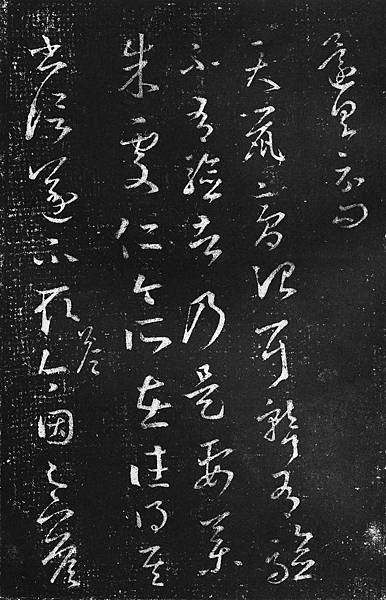 天鼠膏治耳聾有驗
不有驗者乃是要藥
朱處仁今所在往得其
書信遂不取答今因足下答